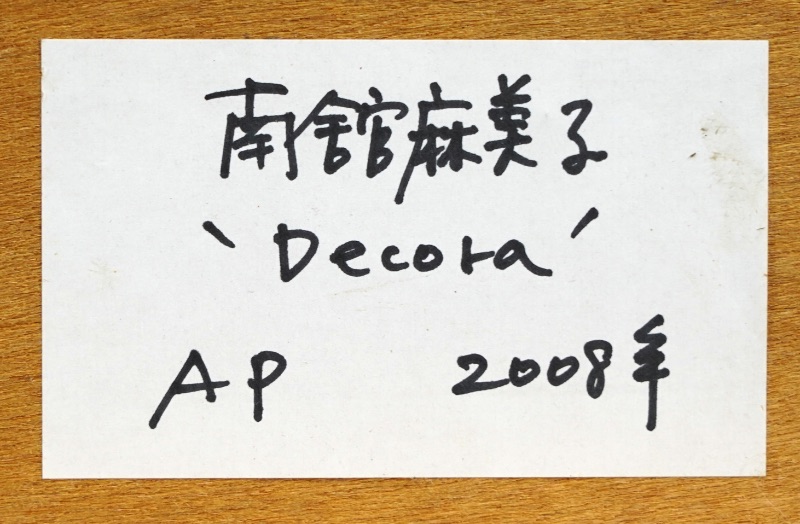 南舘麻美子
‵Decora′
AP 2008年